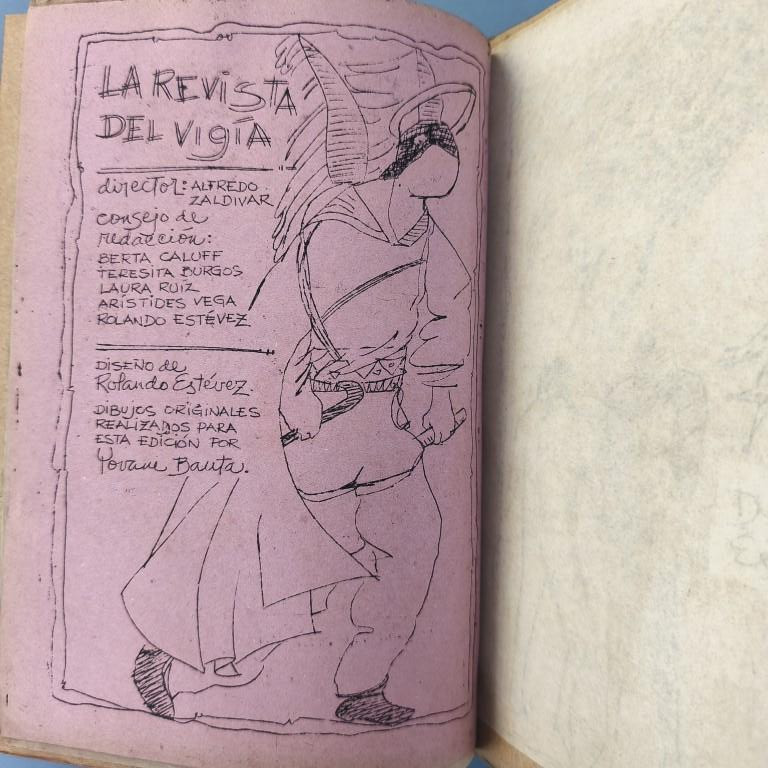 LA REVISTA
DEL VIGÍA
director: ALFREDO
ZALDIVAR
consejo de
redacción:
BERTA CALUFF
TERESITA BURGOS
LAURA RUIZ
ARÍSTIDES VEGA
ROLANDO ESTÉVEZ
DISEÑO de
Rolando Estévez.
DIBUJOS ORIGINALES
REALIZADOS PARA
ESTA EDICIÓN POR
Yovani Bauta.